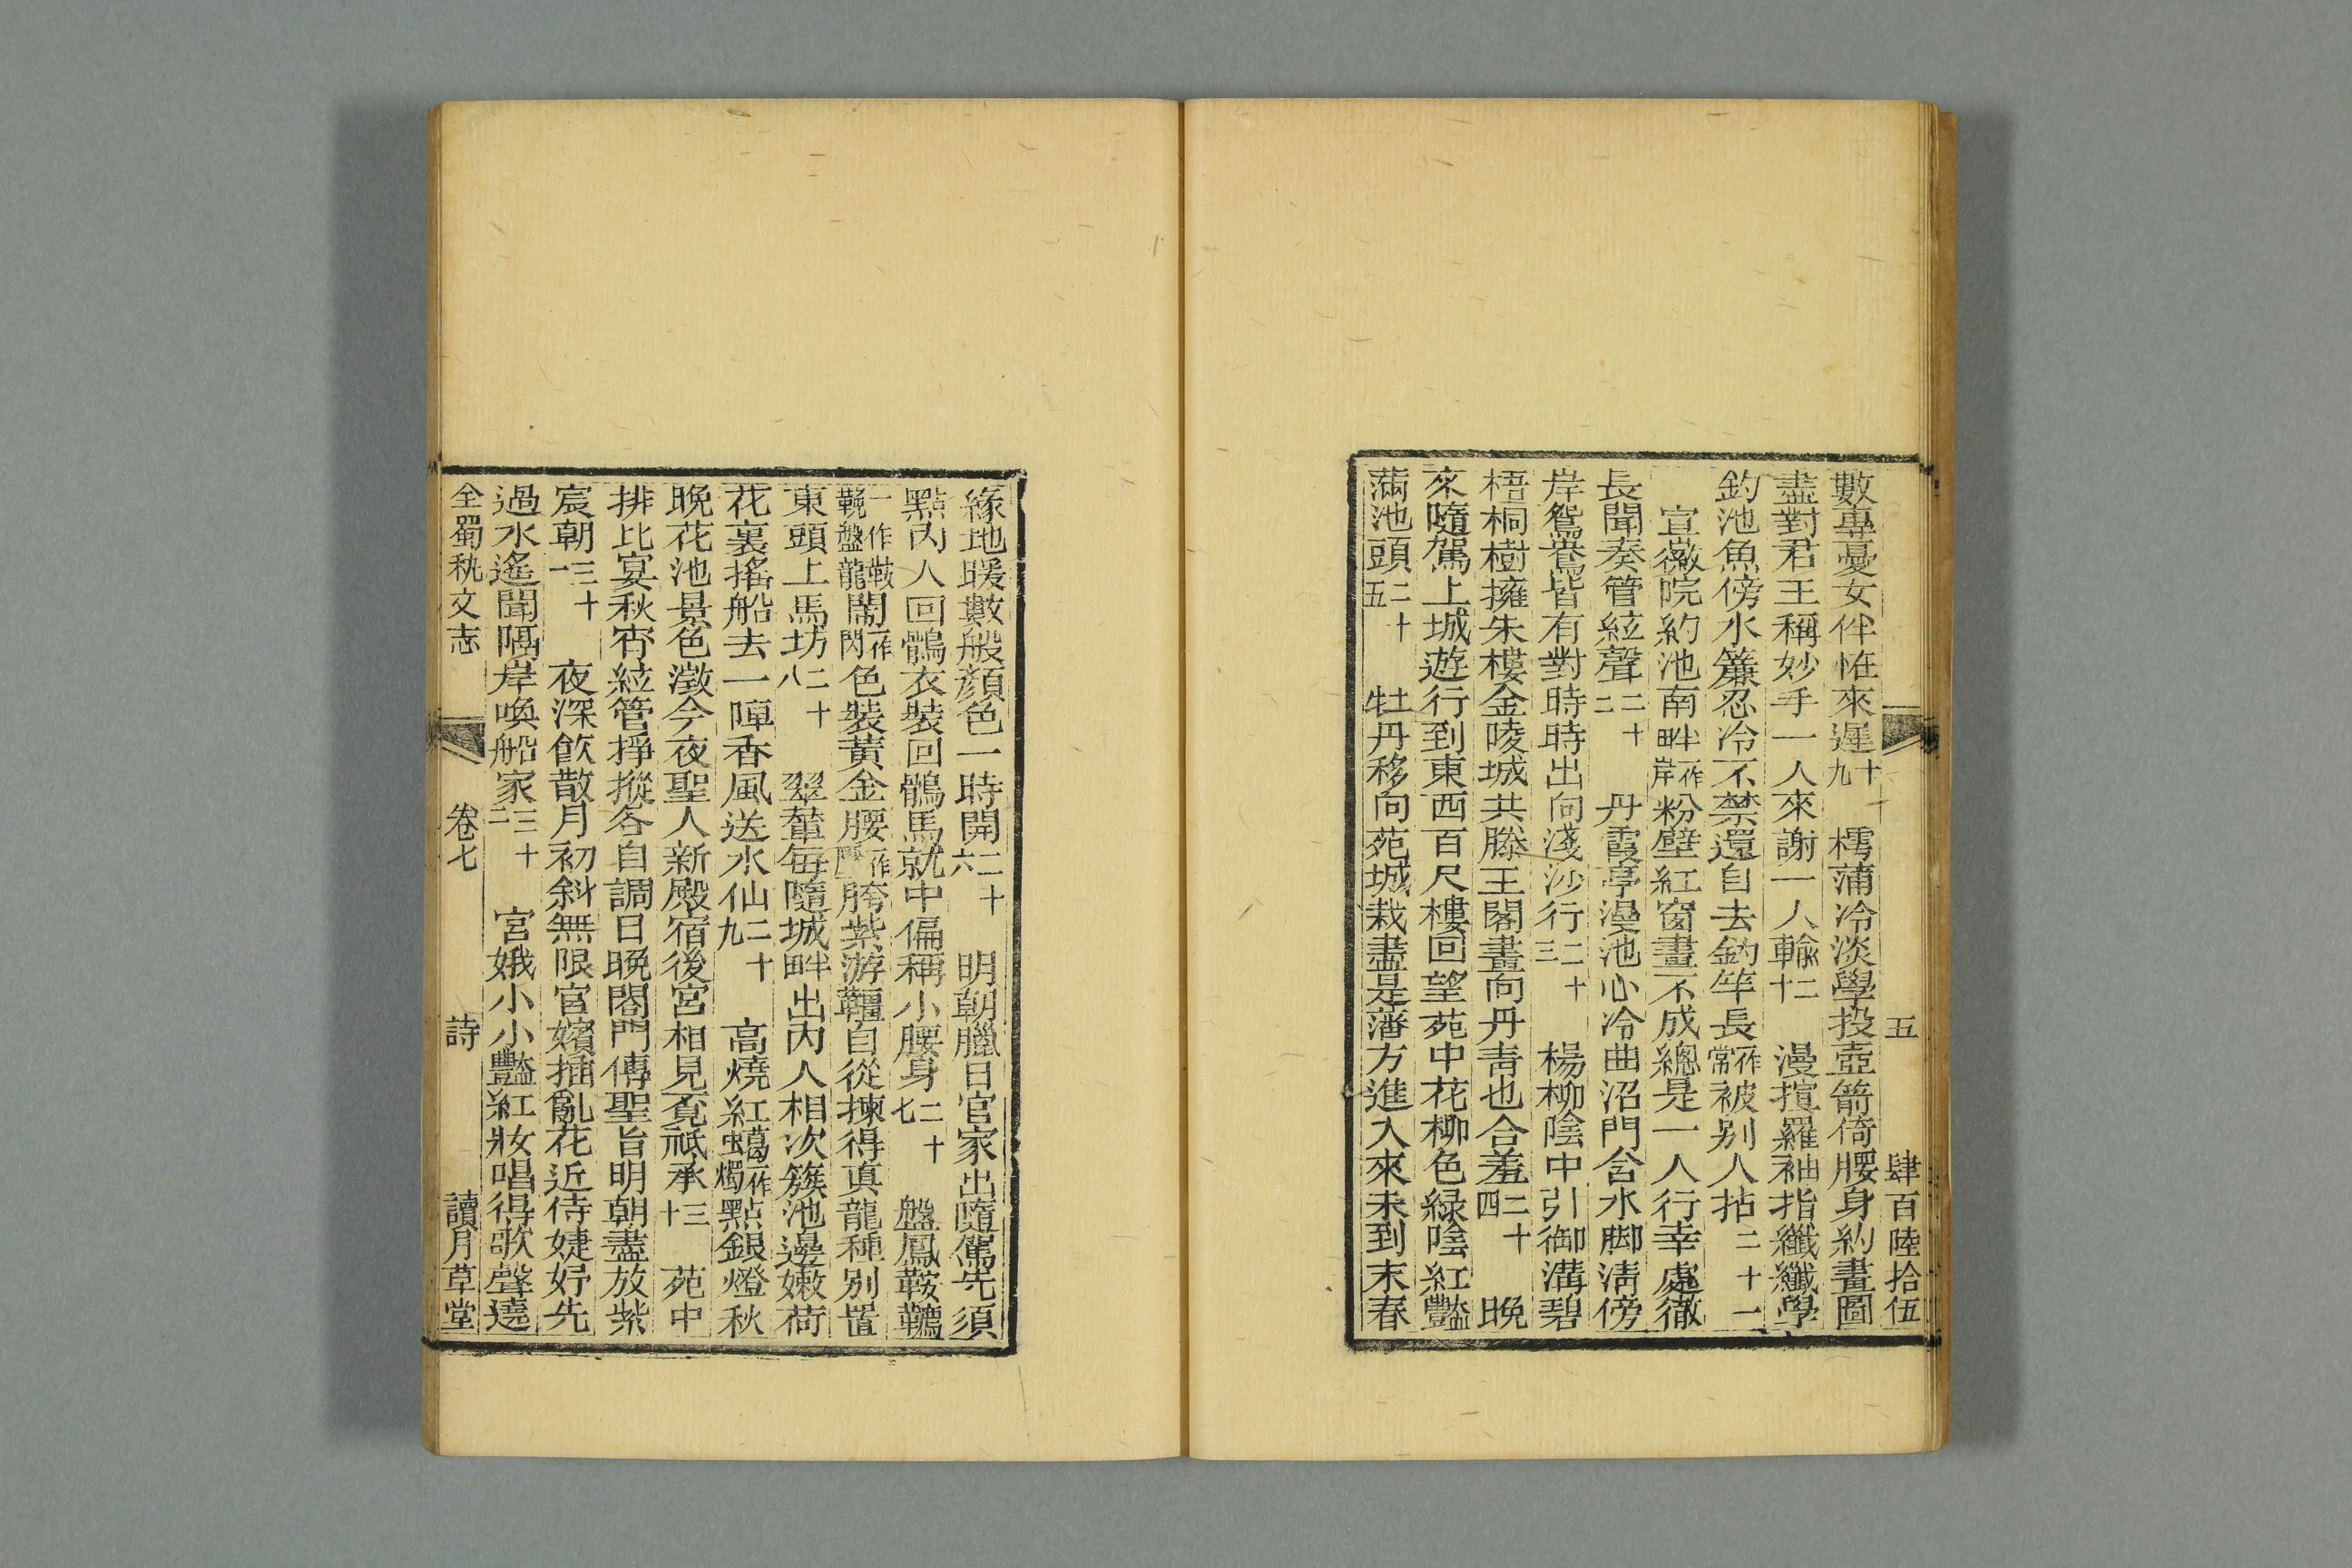 五　肆百陸拾伍
數專憂女伴恠來遲十九　樗蒲冷淡學投壺箭倚腰身約畫圖
盡對君王稱妙手一人來謝一人輸二十　漫揎羅袖指纖纖學
釣池魚傍水簾忍冷不禁還自去釣竿長一作常被别人拈二十一
宣徽院約池南畔一作岸粉壁紅窗畫不成總是一人行幸處徹
長聞奏管絃聲二十二　丹霞亭漫池心冷曲沼門含水脚淸傍
岸鴛鴦皆有對時時出向淺沙行二十三　楊柳陰中引御溝碧
梧桐樹擁朱樓金陵城共滕王閣畫向丹靑也合羞二十四　晚
來隨駕上城遊行到東西百尺樓回望苑中花柳色緑陰紅豔
滿池頭二十五　牡丹移向苑城栽盡是藩方進入來未到末春
緣地暖數般顔色一時開二十六　明朝臘日官家出隨駕先須
點內人回鶻衣裝回鶻馬就中偏稱小腰身二十七　盤鳳鞍韉
一作鞍韉盤龍閙一作閃色裝黃金腰一作壓胯紫游韁自從揀得眞龍種别置
東頭上馬坊二十八　翠輦每隨城畔出內人相次簇池邊嫩荷
花裏搖船去一陣香風送水仙二十九　高燒紅蠟一作燭點銀燈秋
晚花池景色澂今夜聖人新殿宿後宮相見竟祗承三十　苑中
排比宴秋宵絃管掙摐各自調日晚閤門傳聖旨明朝盡放紫
宸朝三十一　夜深飮散月初斜無限宮嬪插亂花近侍婕妤先
過水遙聞隔岸喚船家三十二　宮娥小小豔紅妝唱得歌聲遶
全蜀秇文志　卷七　詩　讀月草堂